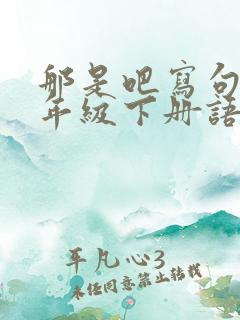 那是吧寫句
年級下册語
平凡心3
未经同意禁止转载